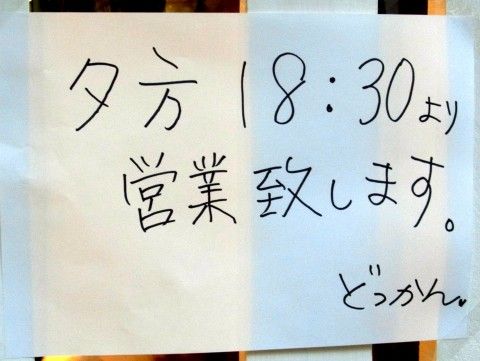 夕方18:30より
営業致します。
どっかん。